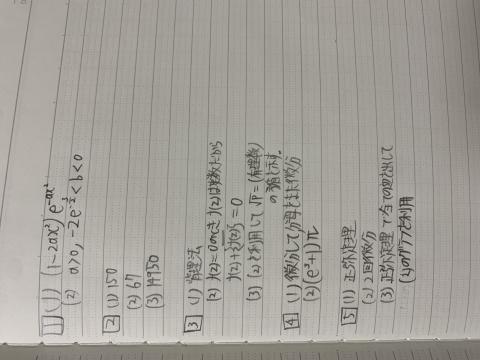 1 (1) (1-2ax²)e^{-ax²}
(2) a>0, -2e^{-3/2}<b<0
2 (1) 150
(2) 67
(3) 14750
3 (1) 背理法
(2) f(z)=0のとき f(z)は実数だから
f(z)+\overline{f(z)}=0
(3) (2)を利用して √p=(有理数)
の形を示す。
4 (1) 微分して分子をまた微分
(2) (e²+1)π
5 (1) 正弦定理
(2) 2回微分
(3) 正弦定理で全ての辺出して
(2)のグラフを利用